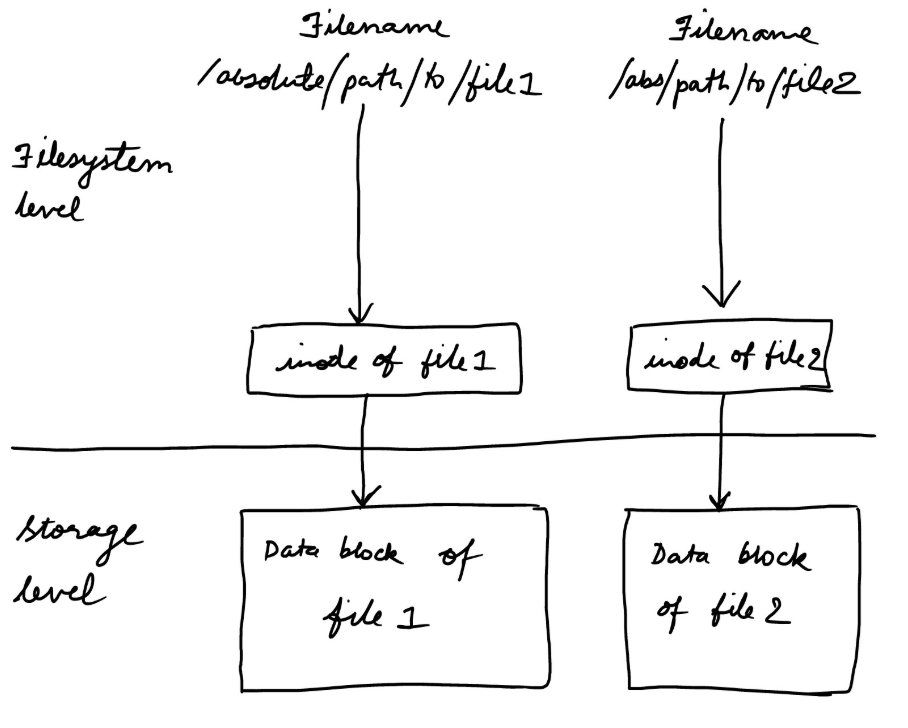 Filename
/absolute/path/to/file1
Filename
/abs/path/to/file2
Filesystem
level
inode of file1
inode of file2
Storage
level
Data block of
file 1
Data block
of file 2